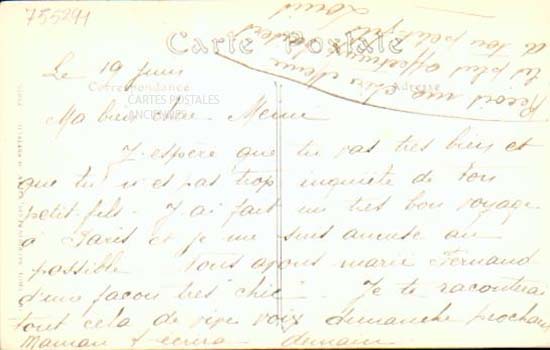 755291
Carte Postale
Correspondance
Adresse
CARTES POSTALES
ANCIENNES
Le 19 Juin
Ma bien chère Mémé
J'espère que tu vas très bien et
que tu n'est pas trop inquiète de ton
petit-fils. J'ai fait un très bon voyage
à Paris et je me suis amusé au
possible Nous avons marié Fernand
d'une façon très "chic". Je te raconterai
tout cela de vive voix dimanche prochain
Maman t'écrira demain
Reçois ma chère Mémé
les plus affectueux baisers
de ton petit fils
Louis